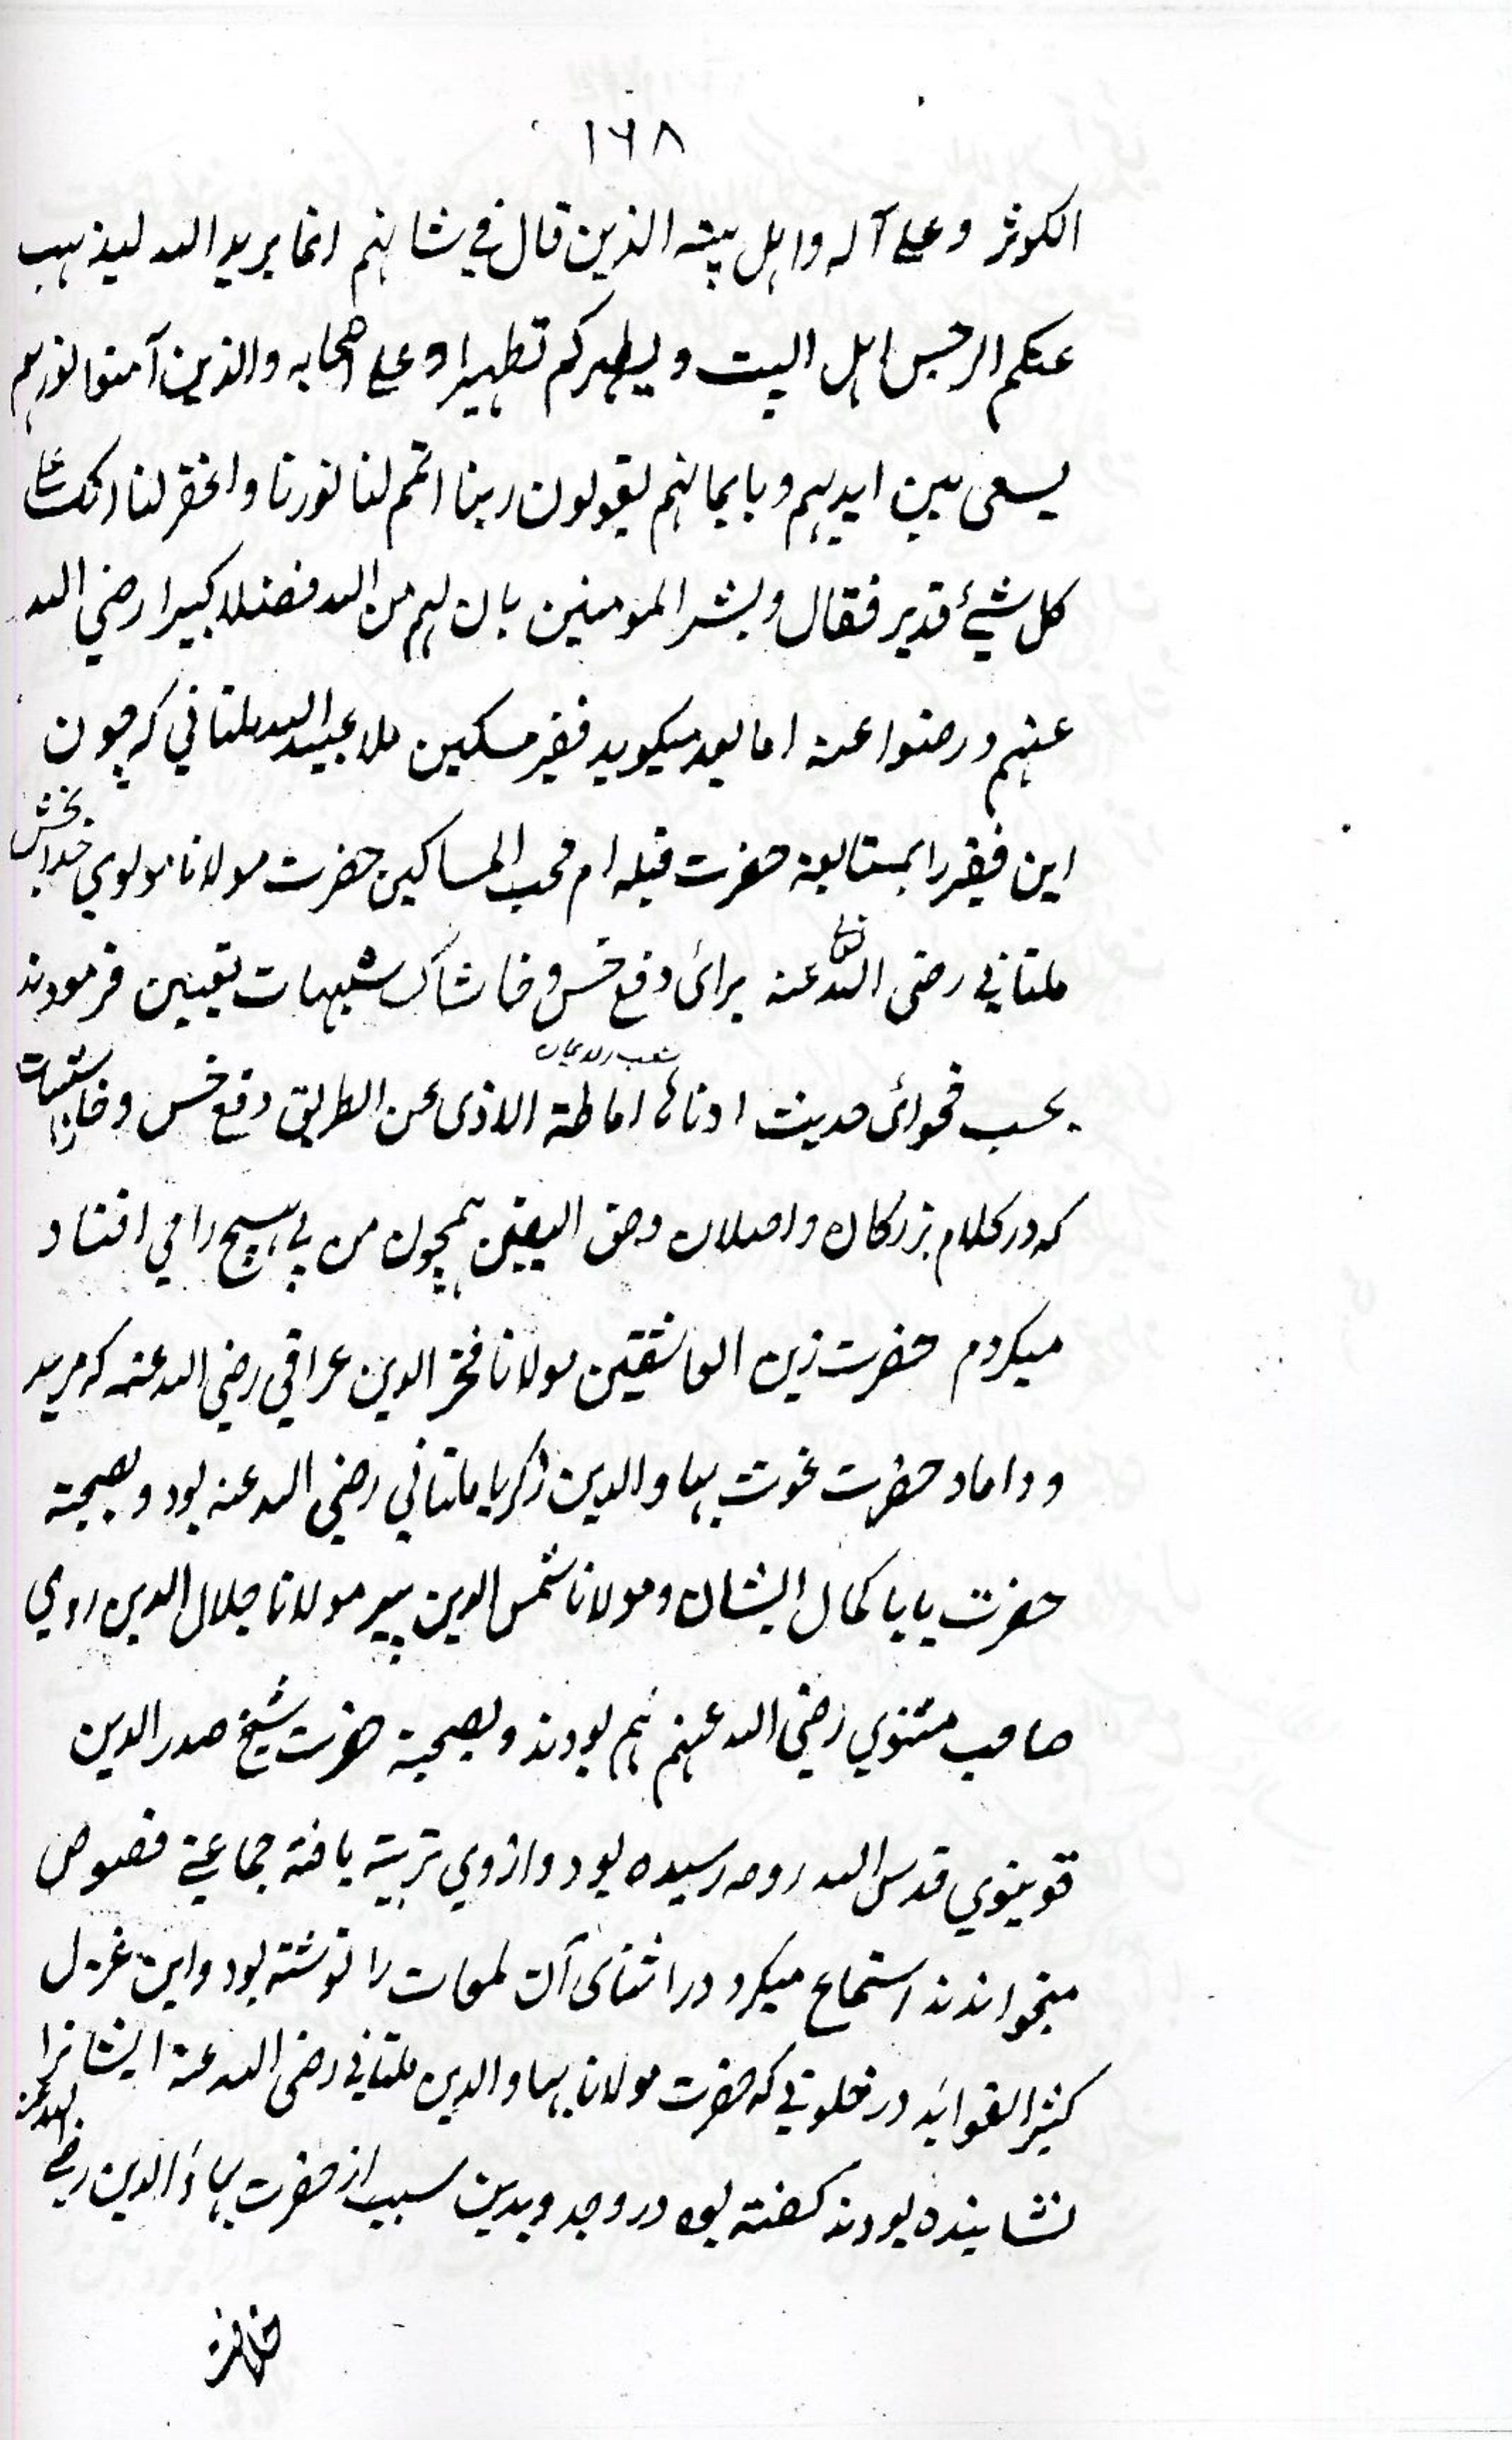 ١٦٨
الکوثر وعلی آله واہل بیته الذین قال فی شانہم انما یرید الله لیذہب
عنکم الرجس اہل البیت ویطہرکم تطہیرا وعلی اصحابه والذین آمنوا نورہم
یسعی بین ایدیہم وبایمانہم یقولون ربنا اتمم لنا نورنا واغفر لنا انک علی
کل شیٔ قدیر فقال وبشر المومنین بان لہم من الله فضلا کبیرا رضی الله
عنہم ورضوا عنه اما بعد میکوید فقیر مسکین ملا عبید الله ملتانی که چون
این فقیر را بمتابعة حضرت قبله ام محب المساکین حضرت مولانا مولوی خدا بخش
ملتانی رضی الله تعالی عنه برائ دفع خس و خاشاک شبهات تعیین فرمودند
بحسب فحوائ حدیث ادناہا اماطة الاذی عن الطریق دفع خس و خاشاک شبهات
که در کلام بزرکان واصلان وحق الیقین ہمچون من بی ہیچ را می افتاد
میکردم حضرت زین العاشقین مولانا فخر الدین عراقی رضی الله عنه که مرید
و داماد حضرت غوث بہاو الدین زکریا ملتانی رضی الله عنه بود و بصحبة
حضرت بابا کمال ایشان و مولانا شمس الدین پیر مولانا جلال الدین رومی
صاحب مثنوی رضی الله عنہم ہم بودند و بصحبة حضرت شیخ صدر الدین
قونیوی قدس الله روحه رسیده بود و از وی تربیة یافته جماعتی فصوص
میخواندند استماع میکرد در اثنای آن لمعات را نوشته بود و این غزل
کثیر الفواید در خلوتی که حضرت مولانا بہاو الدین ملتانی رضی الله عنه ایشانرا
نشاینده بودند کفته بود در وجد و بدین سبب از حضرت بہاؤ الدین رضی الله عنه